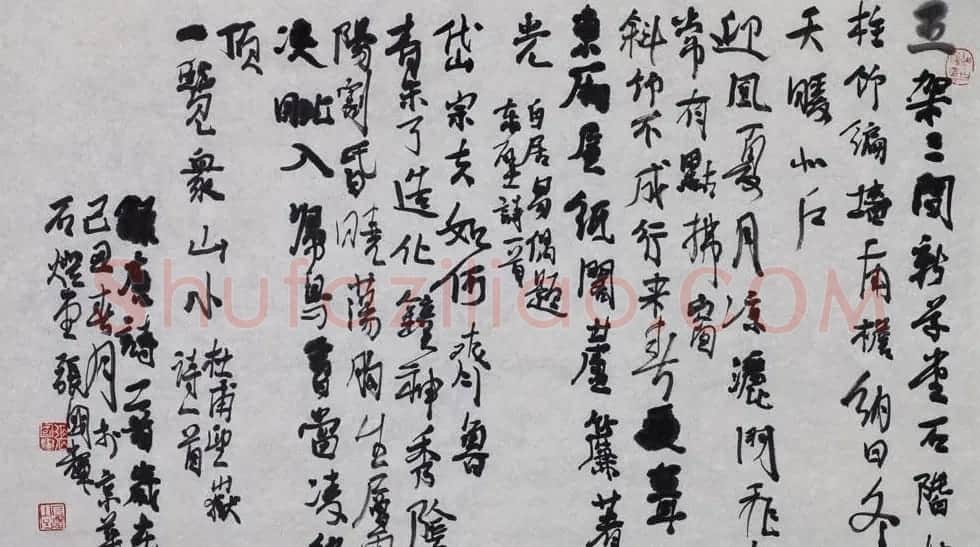 五架三間新草堂石階
柱竹編墻南檐納日冬
天暖北户
迎風夏月凉灑飛
常有點拂窗
斜竹不成行来春更葺
東厢屋紙閣蘆簾著
光
白居易偶題
東壁詩一首
岱宗夫如何齊魯
青未了造化鍾神秀陰
陽割昏曉蕩胸生層雲
决眥入歸鳥會當凌絶
頂
一覽衆山小
杜甫望嶽
詩一首
録唐詩二首歲在
己丑春月於京華
石燈堂張國
Shufaziliao.COM